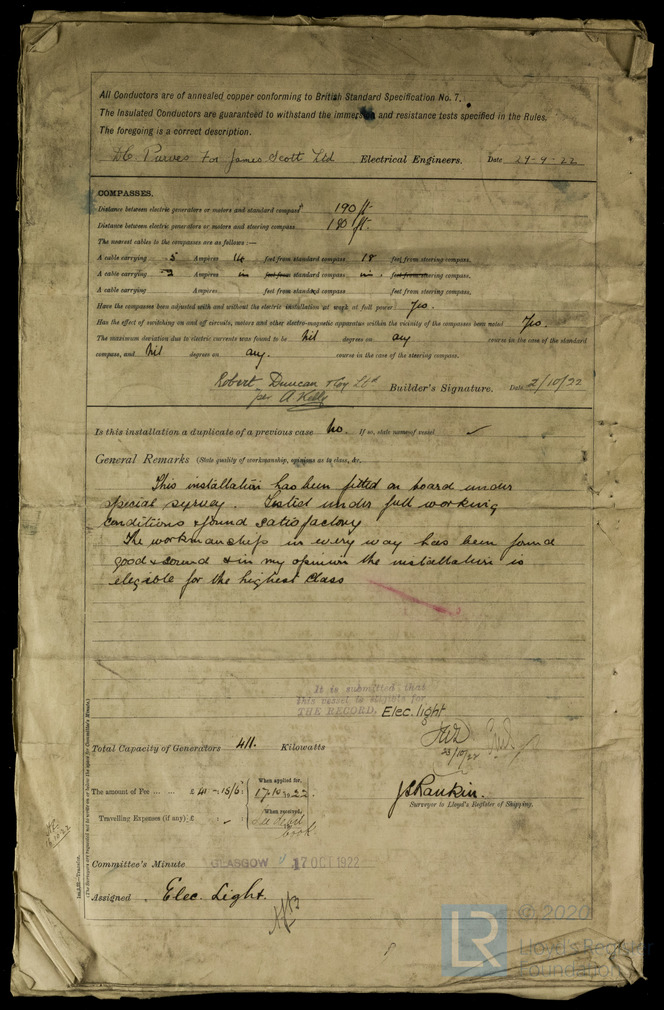 All Conductors are of annealed copper conforming to British Standard Specification No. 7.
The Insulated Conductors are guaranteed to withstand the immersion and resistance tests specified in the Rules.
The foregoing is a correct description.
Purves For James Scott Ltd Electrical Engineers. Date 29-9-22
COMPASSES.
Distance between electric generators or motors and standard compass 190 ft.
Distance between electric generators or motors and steering compass 180 ft.
The nearest cables to the compasses are as follows:—
A cable carrying .5 Ampères 14 feet from standard compass 18 feet from steering compass.
A cable carrying Ampères in feet from standard compass in. feet from steering compass.
A cable carrying Ampères. feet from standard compass feet from steering compass.
Have the compasses been adjusted with and without the electric installation at work at full power? Yes.
Has the effect of switching on and off circuits, motors and other electro-magnetic apparatus within the vicinity of the compasses been noted Yes.
The maximum deviation due to electric currents was found to be Nil degrees on any course in the case of the standard
compass, and Nil degrees on any. course in the case of the steering compass.
Robert Duncan & Coy Ltd Builder's Signature. Date 2/10/22
per A Kelly
Is this installation a duplicate of a previous case No. If so, state name of vessel ✓
General Remarks (State quality of workmanship, opinions as to class, &c.
This installation has been fitted on board under
special survey. Tested under full working
conditions & found satisfactory
The workmanship in every way has been found
good & sound & in my opinion the installation is
elegible for the highest class
It is submitted that
this vessel is eligible for
THE RECORD. Elec. light
23/10/22
Total Capacity of Generators 411. Kilowatts
The amount of Fee ... ... £ 41 - 15/6 When applied for, 17.10.22.
J S Rankin.
Surveyor to Lloyd's Register of Shipping.
Travelling Expenses (if any) £ ✓ When received,
Committee's Minute GLASGOW 17 OCT 1922
Assigned Elec. Light.
(The Surveyors are requested not to write on or below the space for Committee's Minute.)
LR
© 2020
Lloyd's Register
Foundation